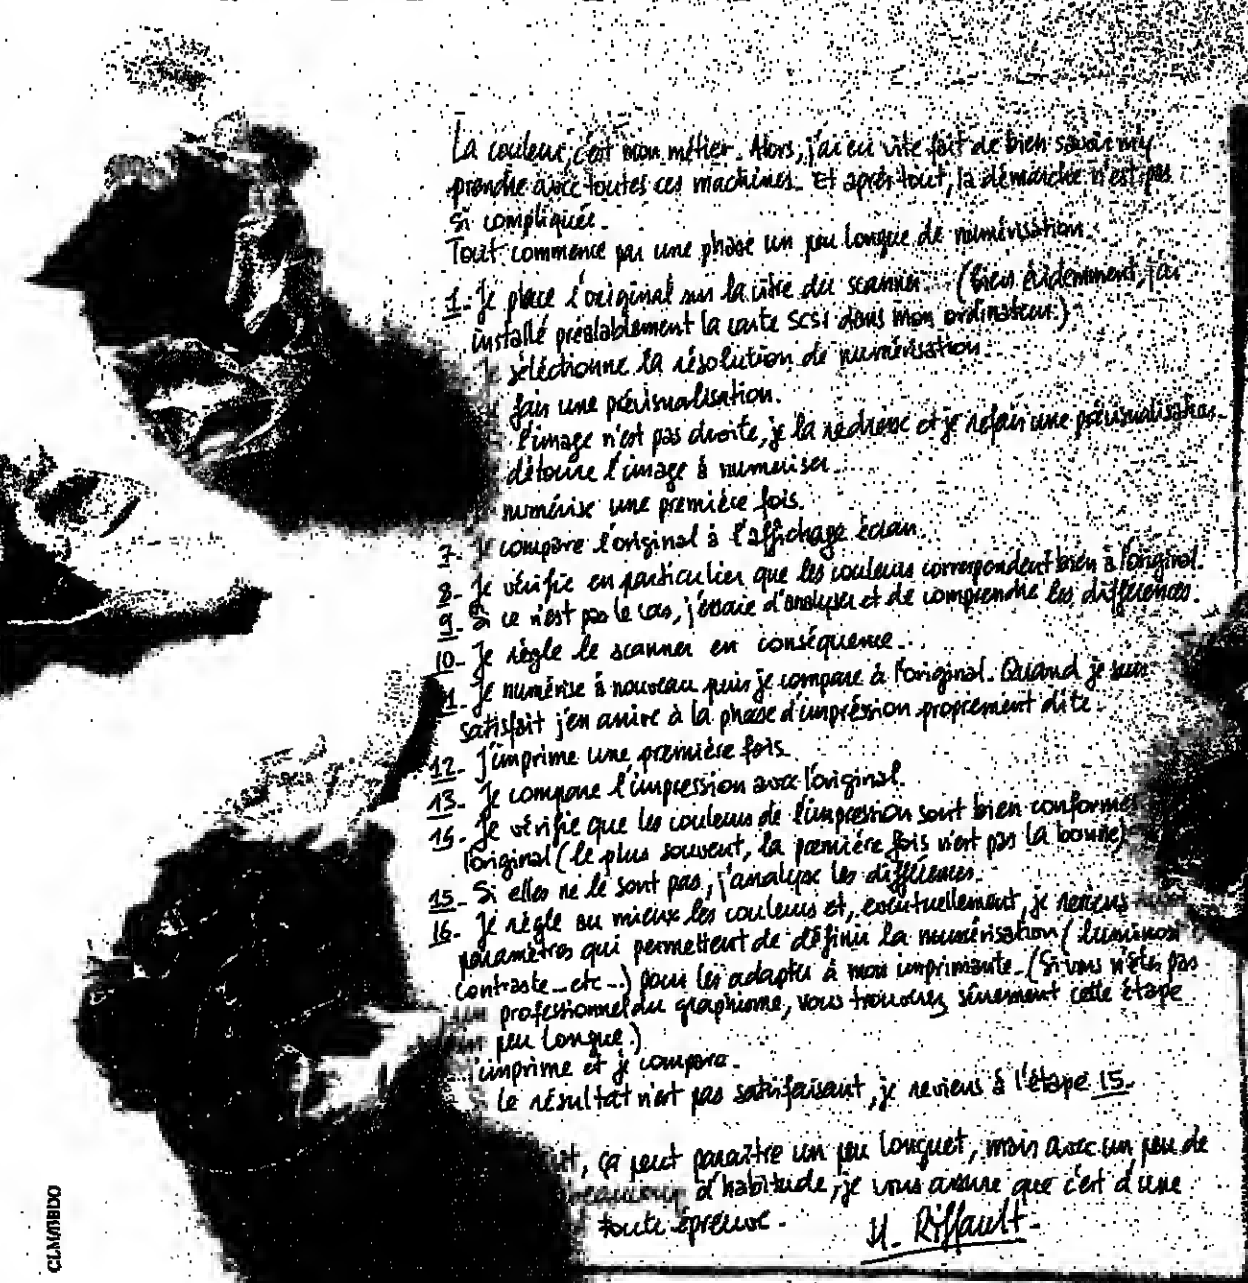 La couleur, c'est mon métier. Alors, j'ai eu vite fait de bien savoir m'y
prendre avec toutes ces machines. Et après tout, la démarche n'est pas
si compliquée.
Tout commence par une phase un peu longue de numérisation.
1. Je place l'original sur la vitre du scanner. (bien évidemment, j'ai
installé préalablement la carte SCSI dans mon ordinateur.)
sélectionne la résolution de numérisation.
fais une prévisualisation.
l'image n'est pas droite, je la redresse et je refais une prévisualisation.
détoure l'image à numériser.
numérise une première fois.
7. Je compare l'original à l'affichage écran.
8. Je vérifie en particulier que les couleurs correspondent bien à l'original.
9. Si ce n'est pas le cas, j'essaie d'analyser et de comprendre les différences.
10. Je règle le scanner en conséquence.
11. Je numérise à nouveau puis je compare à l'original. Quand je suis
satisfait j'en arrive à la phase d'impression proprement dite.
12. J'imprime une première fois.
13. Je compare l'impression avec l'original.
14. Je vérifie que les couleurs de l'impression sont bien conformes
l'original (le plus souvent, la première fois n'est pas la bonne)
15. Si elles ne le sont pas, j'analyse les différences.
16. Je règle au mieux les couleurs et, éventuellement, je reviens
paramètres qui permettent de définir la numérisation (luminosi
contraste... etc...) pour les adapter à mon imprimante. (Si vous n'êtes pas
un professionnel du graphisme, vous trouverez sûrement cette étape
un peu longue.)
j'imprime et je compare.
le résultat n'est pas satisfaisant, je reviens à l'étape 15.
ça peut paraître un peu longuet, mais avec un peu de
beaucoup d'habitude, je vous assure que c'est d'une
toute épreuve.
H. Riffault
CLM/BBDO